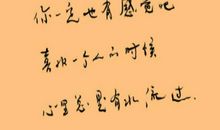 你一定也有感觉吧
喜欢一个人的时候
心里总是有水流过.